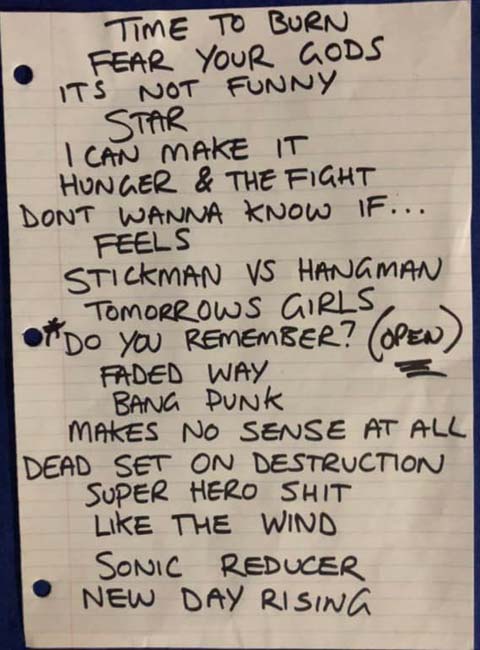 TIME TO BURN
FEAR YOUR GODS
ITS NOT FUNNY
STAR
I CAN MAKE IT
HUNGER & THE FIGHT
DONT WANNA KNOW IF...
FEELS
STICKMAN VS HANGMAN
TOMORROWS GIRLS
*DO YOU REMEMBER? (OPEN)
FADED WAY
BANG PUNK
MAKES NO SENSE AT ALL
DEAD SET ON DESTRUCTION
SUPER HERO SHIT
LIKE THE WIND
SONIC REDUCER
NEW DAY RISING